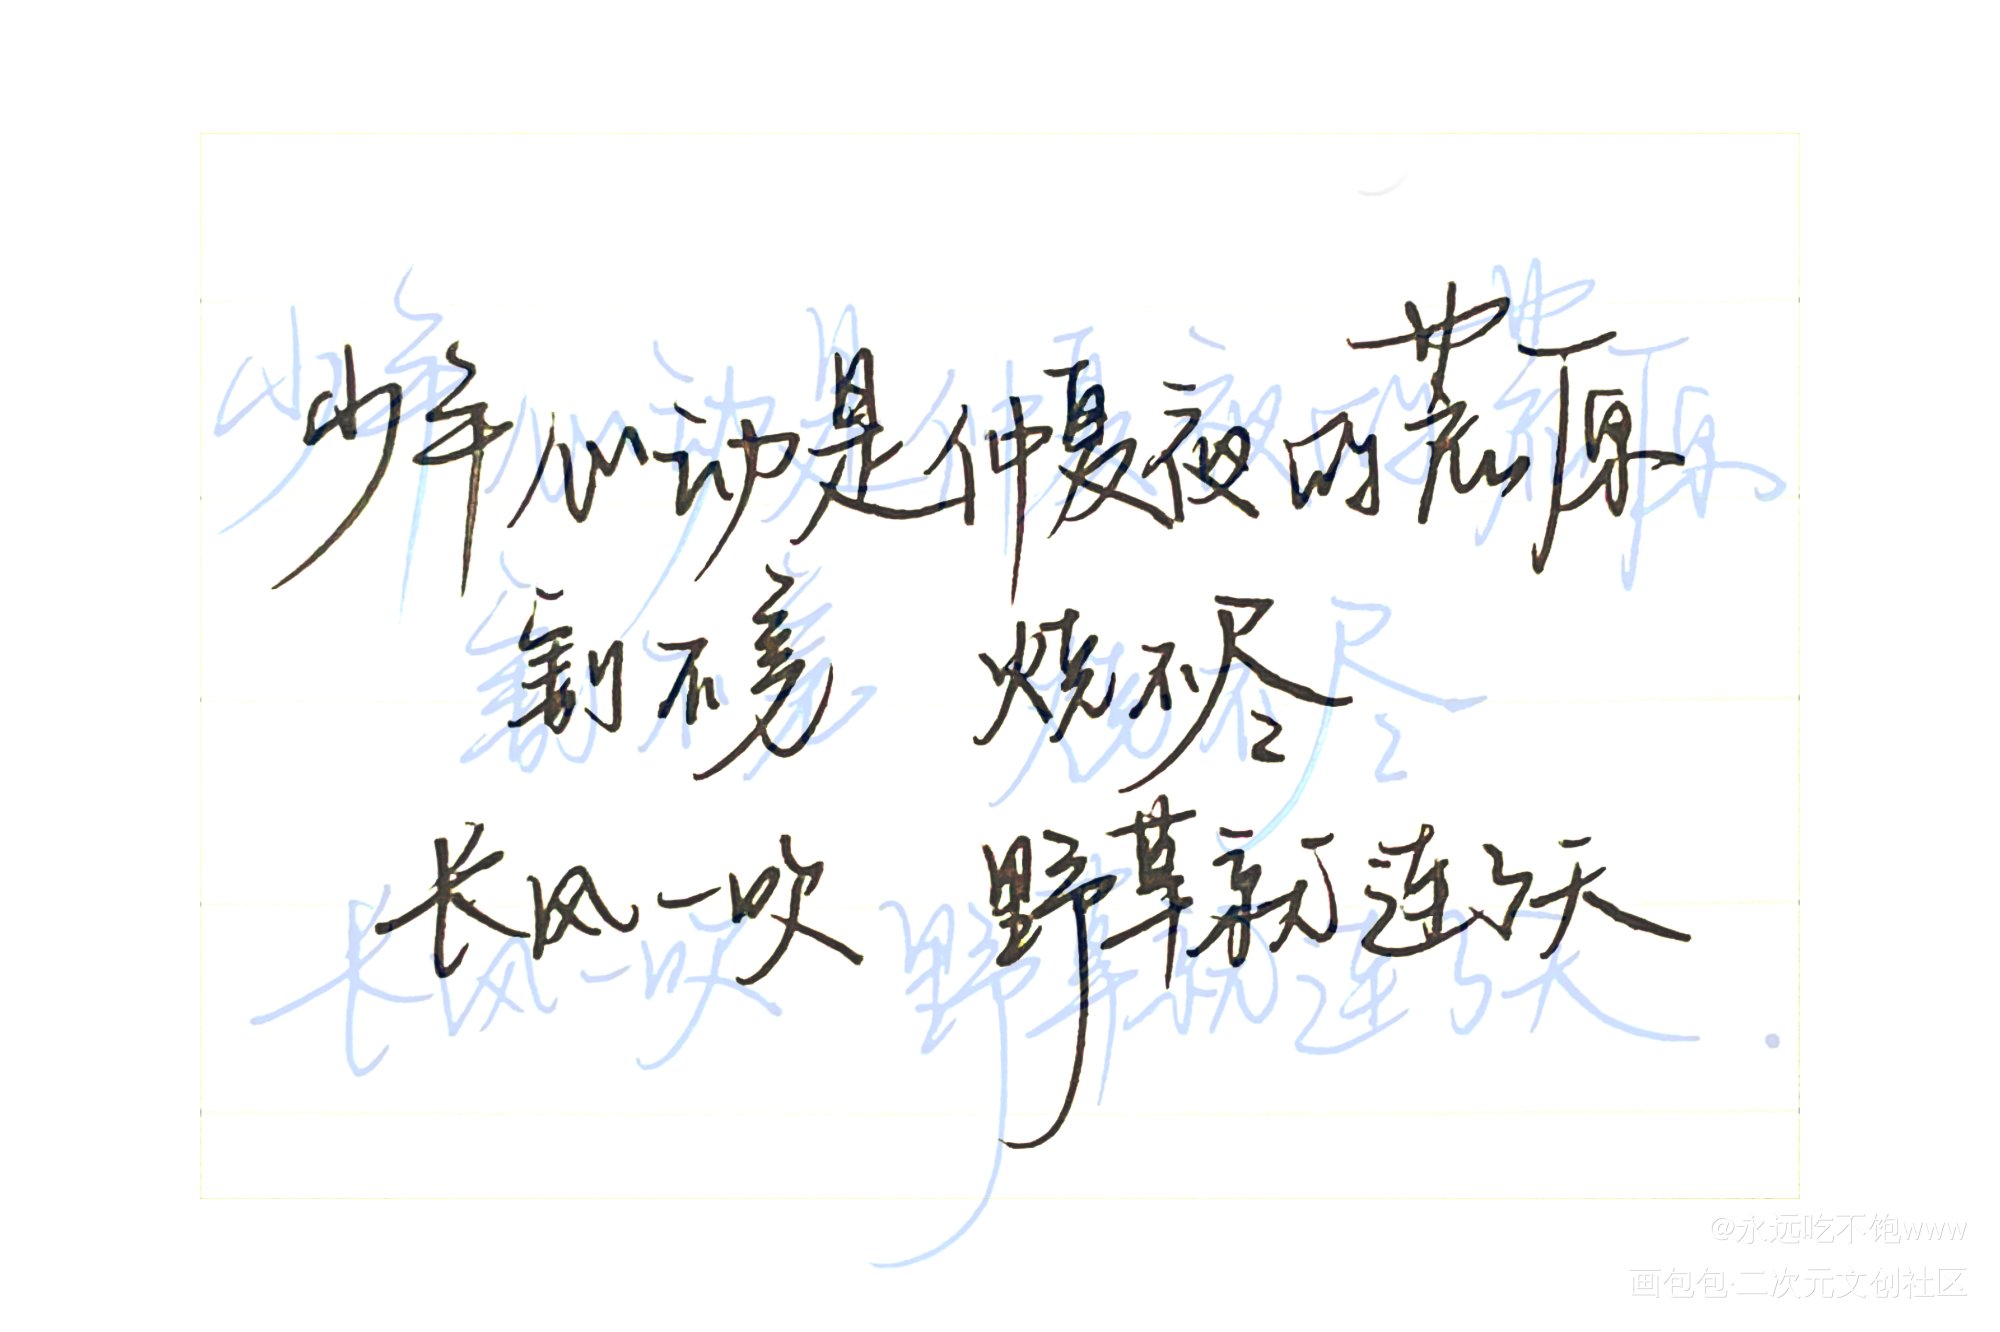 少年心动是仲夏夜的荒原
割不完 烧不尽
长风一吹 野草就连了天
@永远吃不饱www
画包包·二次元文创社区